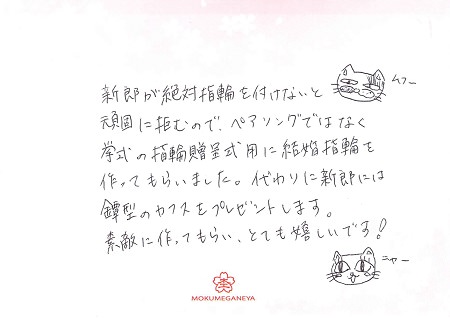 新郎が絶対指輪を付けないと
ムフー
頑固に拒むので、ペアリングではなく
挙式の指輪贈呈式用に結婚指輪を
作ってもらいました。代わりに新郎には
鐔型のカフスをプレゼントします。
素敵に作ってもらい、とても嬉しいです!
ニャー
MOKUMEGANEYA